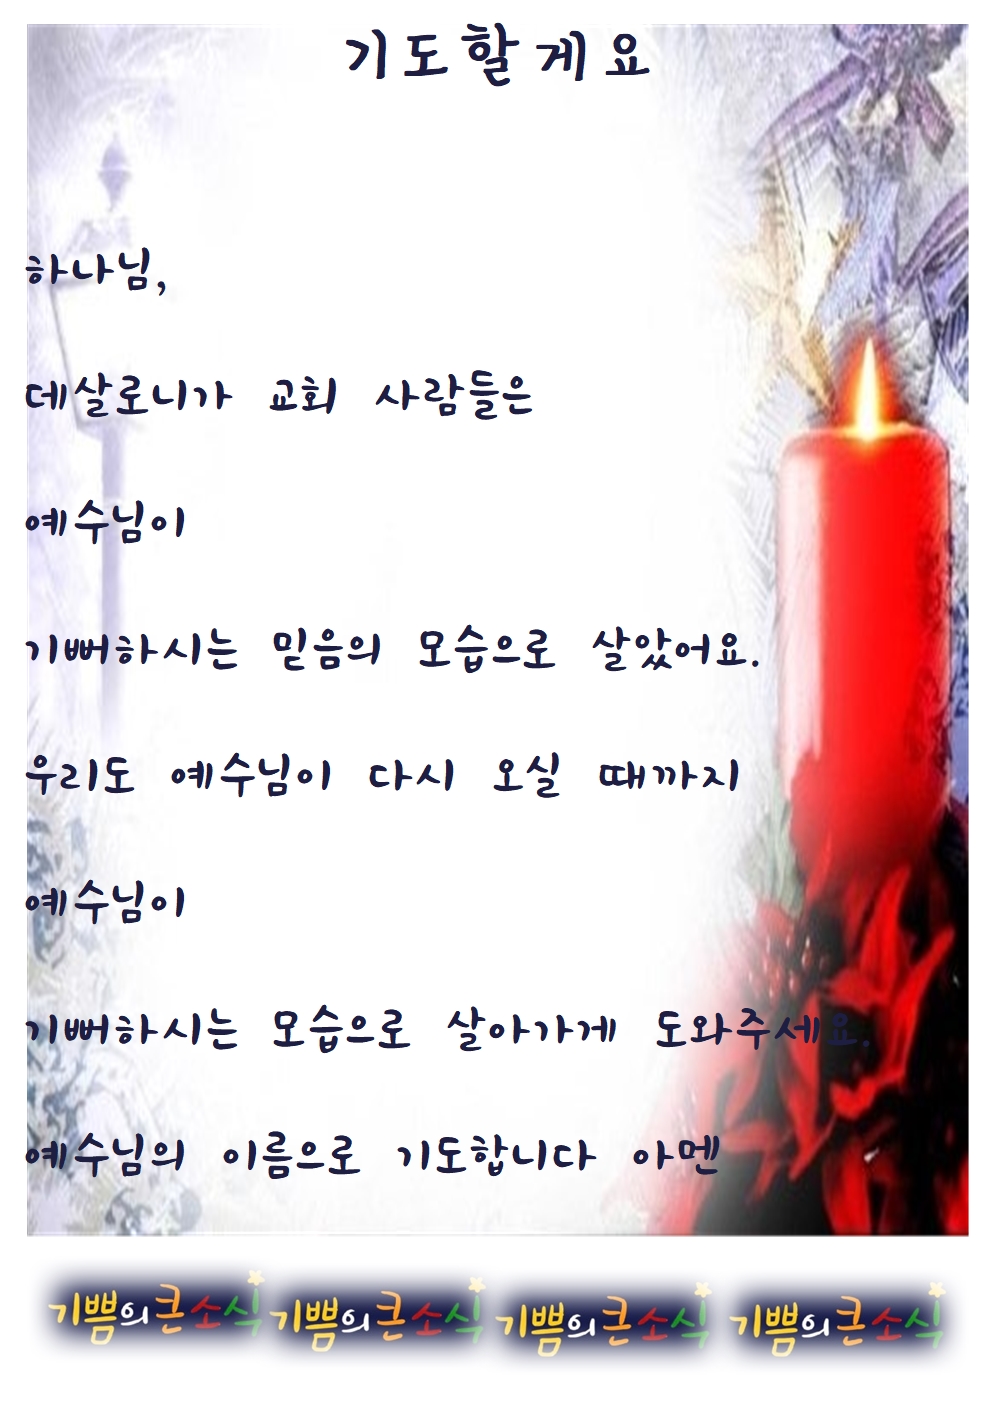 기도할게요
하나님,
데살로니가 교회 사람들은
예수님이
기뻐하시는 믿음의 모습으로 살았어요.
우리도 예수님이 다시 오실 때까지
예수님이
기뻐하시는 모습으로 살아가게 도와주세요.
예수님의 이름으로 기도합니다 아멘
기쁨의큰소식 기쁨의큰소식 기쁨의큰소식 기쁨의큰소식